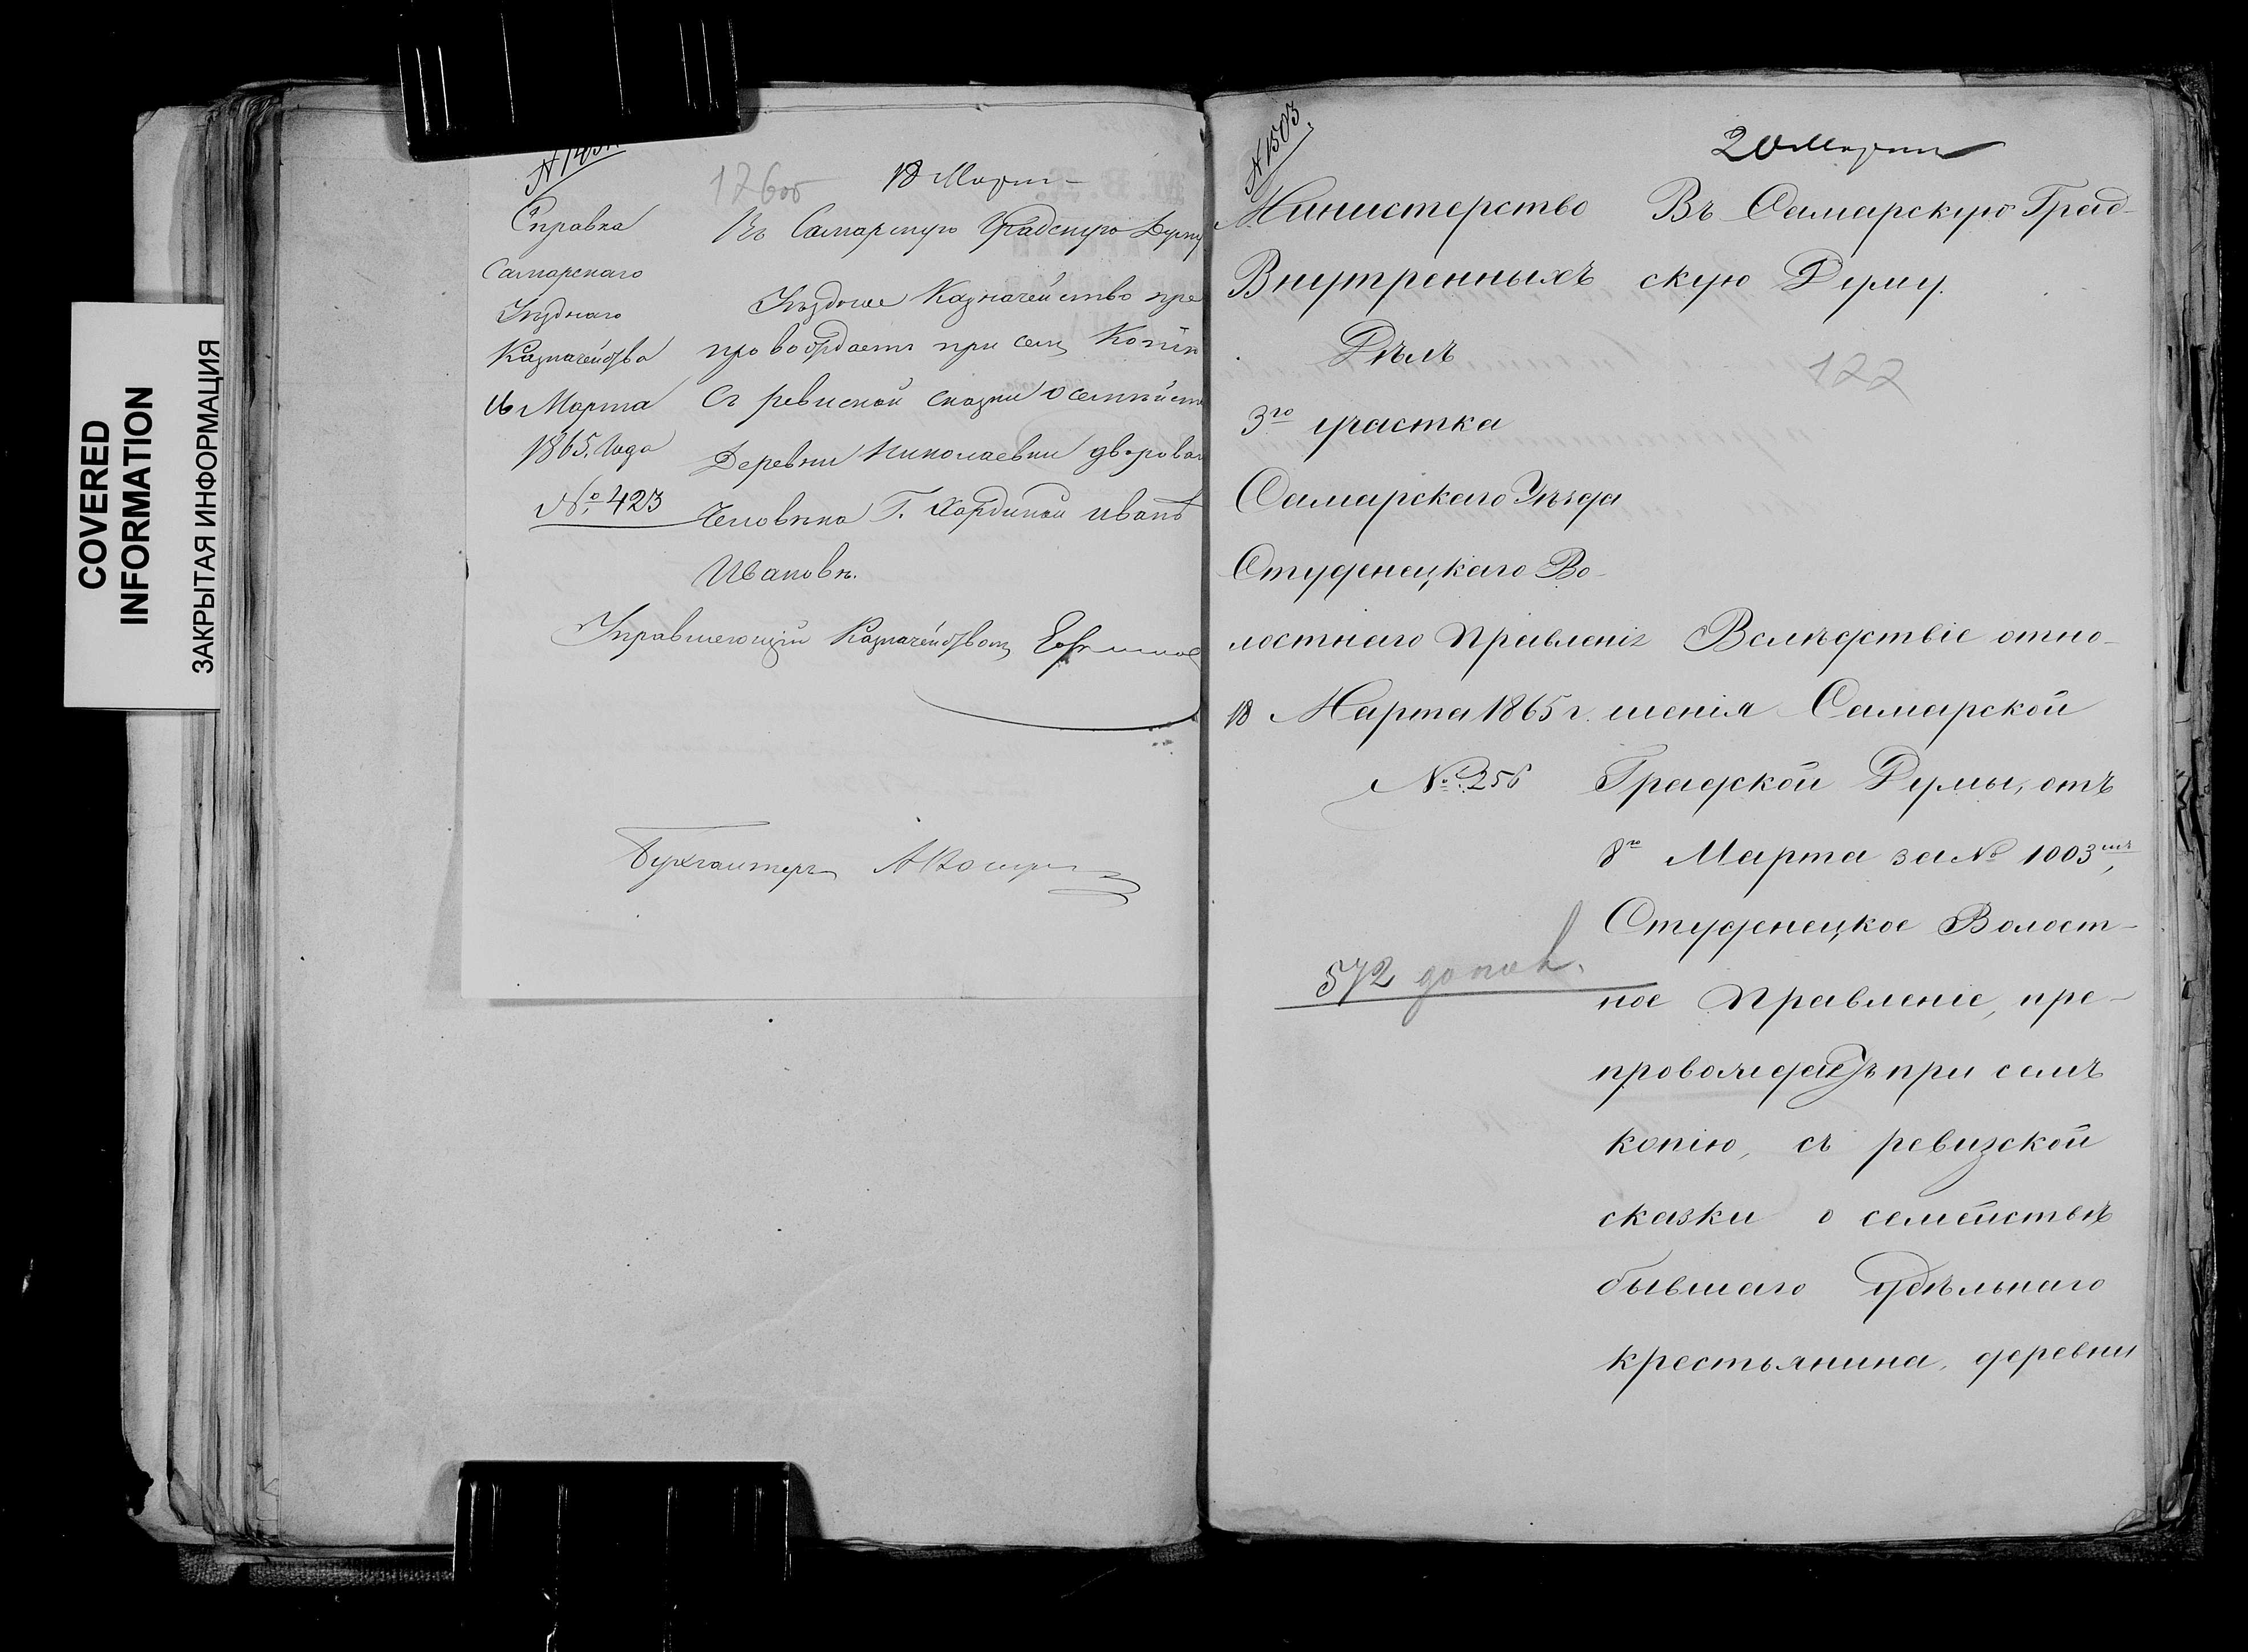 COVERED
INFORMATION
ЗАКРЫТАЯ ИНФОРМАЦИЯ
126об
18 Марта
Справка
Самарскаго
Уѣзднаго
Казначейства
16 Марта
1865 Года
№ 423
Въ Самарскую Градскую Думу
Уѣздное Казначейство пре
провождаетъ при семъ Копію
съ ревиской сказки о семѣйст
Деревни Николаевки дворова
Человѣка Г. Хардиной Иванѣ
Ивановѣ.
Управляющій Казначействомъ
Бухгалтеръ
№ 1503.
20 Марта
Министерство
Внутренныхъ
Дѣлъ
3го участка
Самарскаго Уѣзда
Студенецкаго Во-
лостнаго Правленія
18 Марта 1865 г.
№ 256
572 допол.
Въ Самарскую Град-
скую Думу.
122
Вслѣдствіе отно-
шенія Самарской
Градской Думы, отъ
8го Марта за № 1003мъ,
Студенецкое Волост-
ное Правленіе, пре-
провождаетъ при семъ
копію, съ ревизской
сказки о семействѣ
бывшаго удѣльнаго
крестьянина, деревни